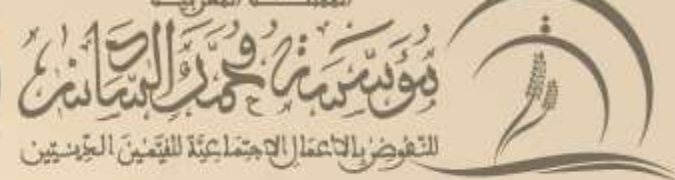 المملكة المغربية
مؤسسة محمد السادس
للنهوض بالأعمال الاجتماعية للقيمين الدينيين